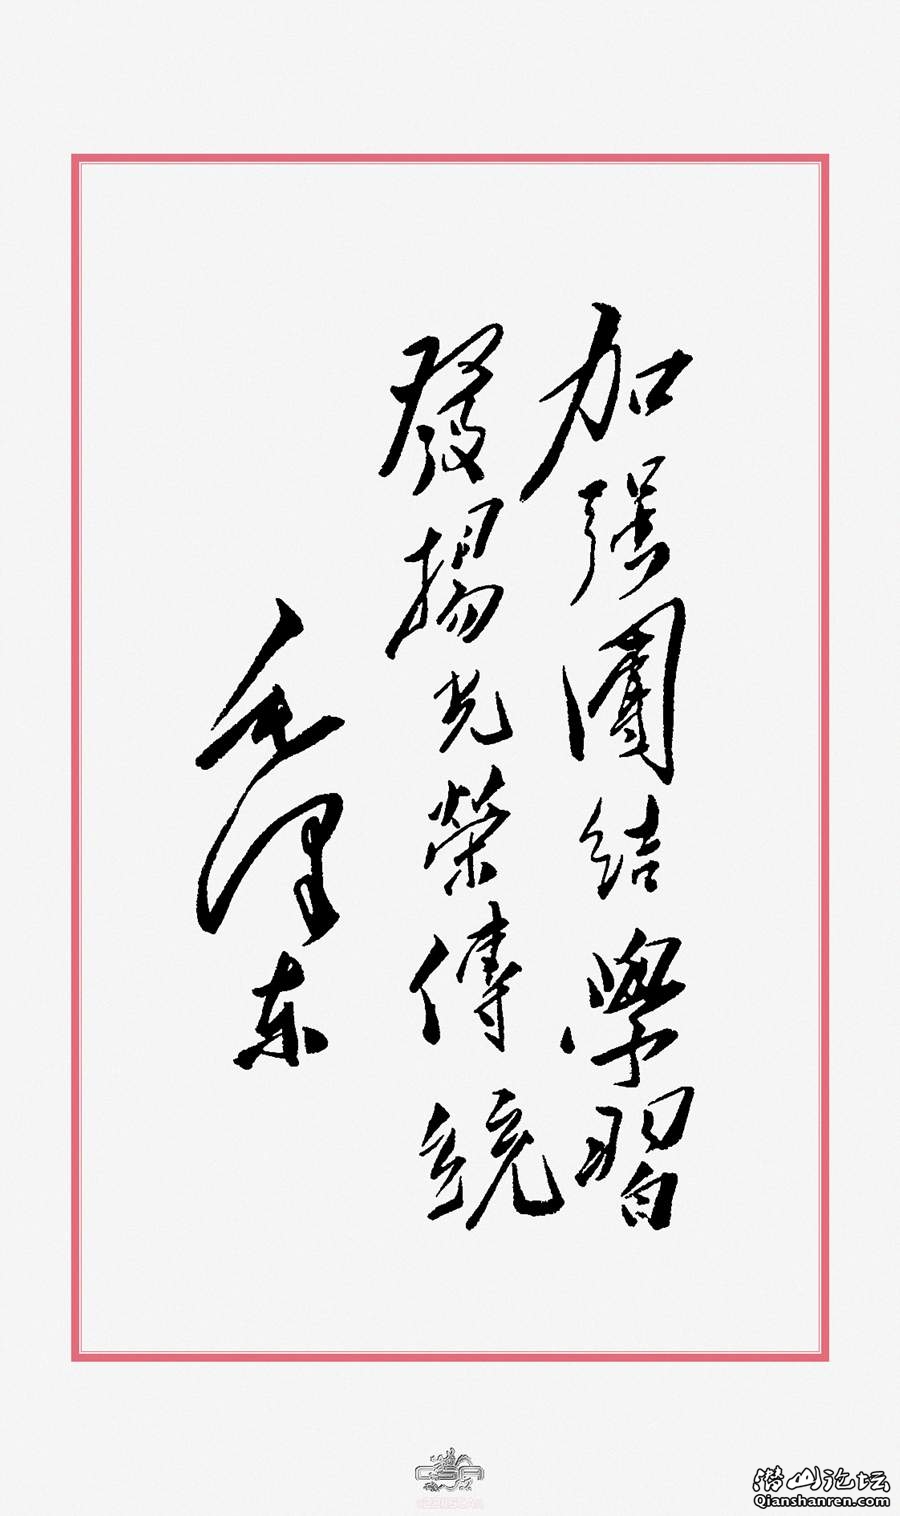 加强團结學習
發揚光榮傳統
毛澤东
CSA
潜山论坛
Qianshanren.com